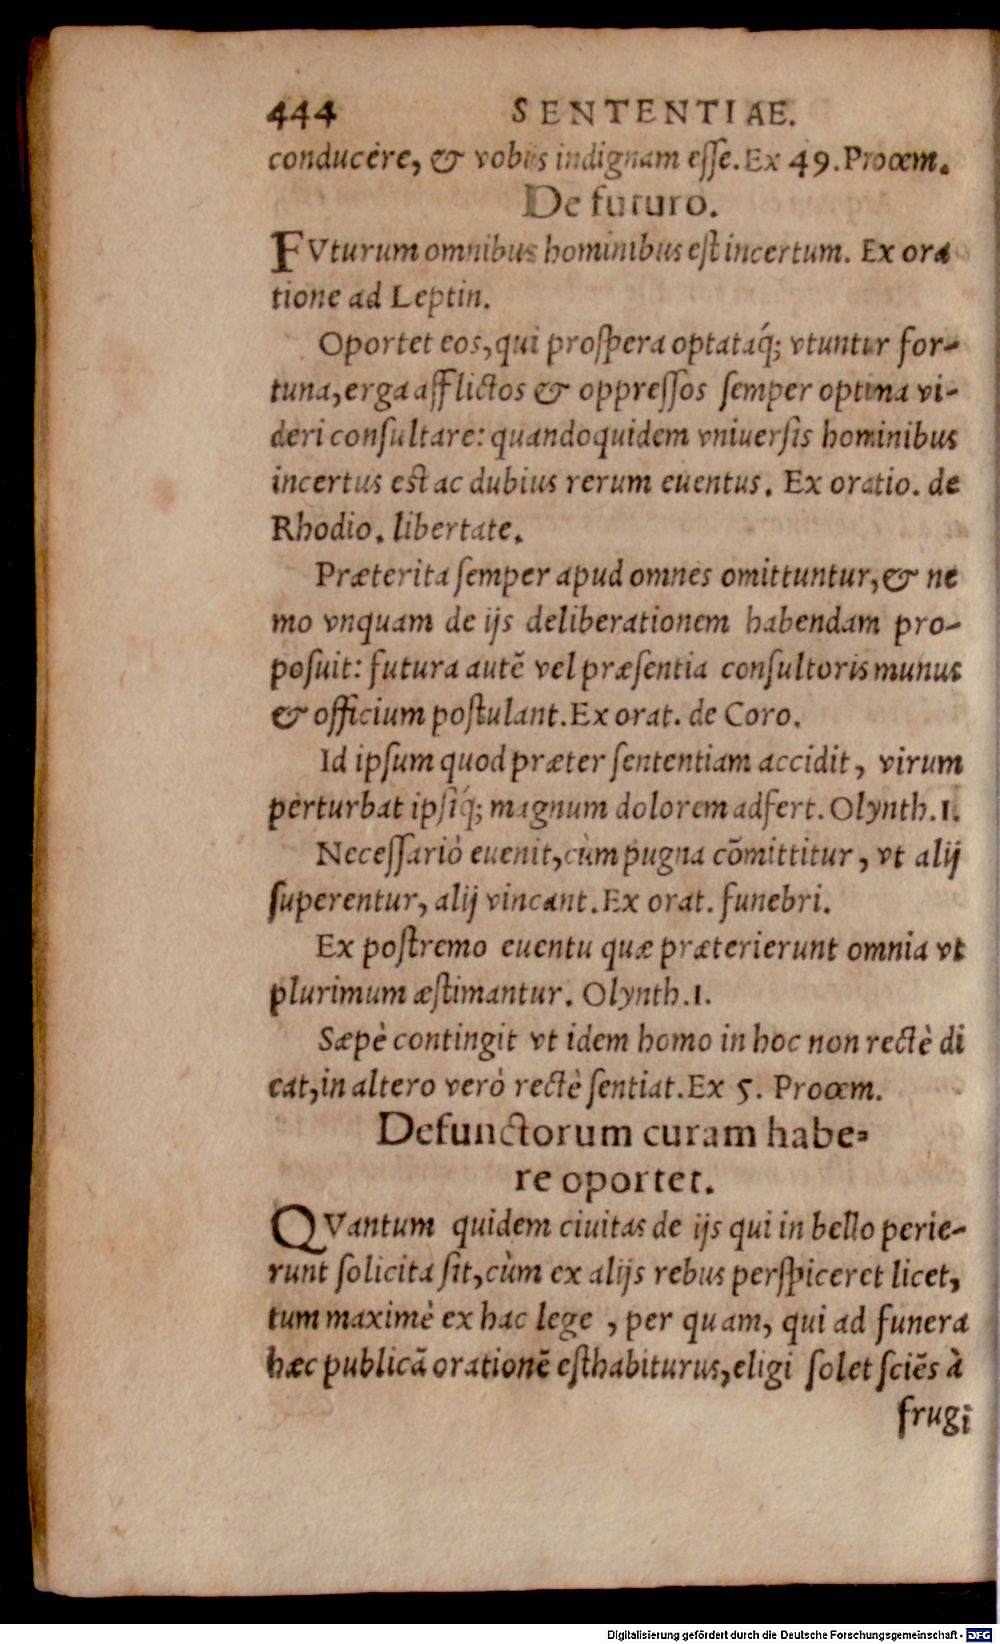 444 SENTENTIAE.
conducere, & vobis indignam esse. Ex 49. Prooem.
De futuro.
FVturum omnibus hominibus est incertum. Ex ora
tione ad Leptin.
Oportet eos, qui prospera optataq́; vtuntur for-
tuna, erga afflictos & oppressos semper optima vi-
deri consultare: quandoquidem vniuersis hominibus
incertus est ac dubius rerum euentus. Ex oratio. de
Rhodio. libertate.
Præterita semper apud omnes omittuntur, & ne
mo vnquam de ijs deliberationem habendam pro-
posuit: futura autē vel præsentia consultoris munus
& officium postulant. Ex orat. de Coro.
Id ipsum quod præter sententiam accidit, virum
perturbat ipsiq́; magnum dolorem adfert. Olynth. 1.
Necessariò euenit, cùm pugna cōmittitur, vt alij
superentur, alij vincant. Ex orat. funebri.
Ex postremo euentu quæ præterierunt omnia vt
plurimum æstimantur. Olynth. 1.
Sæpè contingit vt idem homo in hoc non rectè di
cat, in altero verò rectè sentiat. Ex 5. Prooem.
Defunctorum curam habe-
re oportet.
QVantum quidem ciuitas de ijs qui in bello perie-
runt solicita sit, cùm ex alijs rebus perspiceret licet,
tum maximè ex hac lege, per quam, qui ad funera
hæc publicā orationē est habiturus, eligi solet sciēs à
frugi
Digitalisierung gefördert durch die Deutsche Forschungsgemeinschaft - DFG